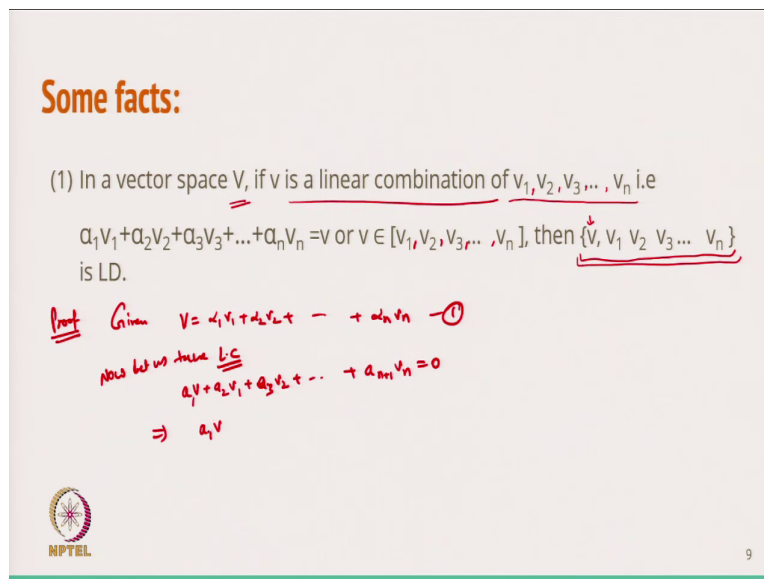 Some facts:
(1) In a vector space V, if v is a linear combination of v₁,v₂,v₃,.. , vₙ i.e
α₁v₁+α₂v₂+α₃v₃+...+αₙvₙ =v or v ∈ [v₁,v₂,v₃,.. ,vₙ ], then {v, v₁ v₂ v₃... vₙ }
is LD.
Proof Given V= α₁v₁+α₂v₂+ – + αₙvₙ –①
Now let us take L.C
a₁v+a₂v₁+a₃v₂+ -.. + aₙ₊₁vₙ=0
⇒ a₁v
NPTEL
9